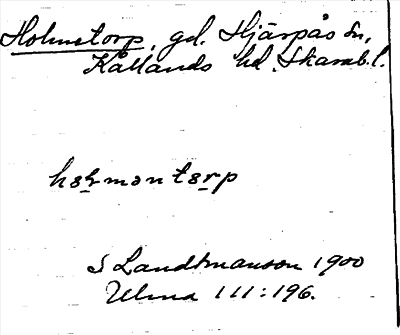 Holmstorp, gd. Hjärpås sn,
Kållands hd. Skarab. l.
S Landtmanson 1900
Ulma 111:196.